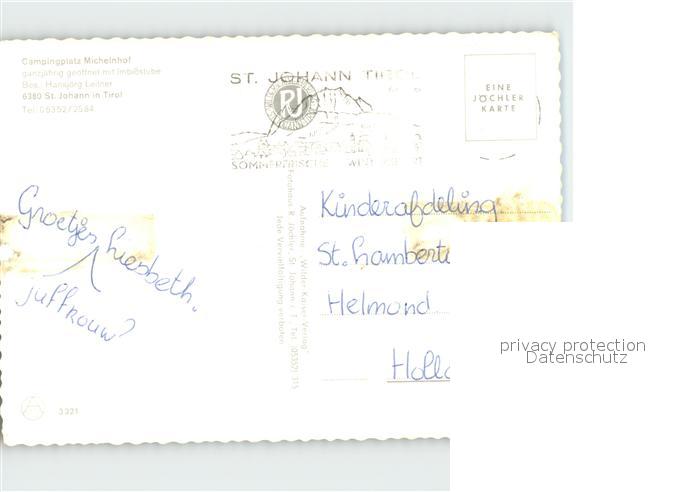 Campingplatz Michelnhof
ganzjährig geöffnet mit Imbißstube
Bes.: Hansjörg Leitner
6380 St. Johann in Tirol
Tel. 05352/2584
ST. JOHANN TIROL
SOMMERFRISCHE
EINE
JÖCHLER
KARTE
Groetjes Liesbeth.
juffrouw?
Aufnahme „Wilder Kaiser Verlag"
Fotohaus R. Jöchler, St. Johann i. T. Tel. (05352) 315
Jede Vervielfältigung verboten
Kinderafdeling
St. Lamberte
Helmond
Holla
3321
privacy protection
Datenschutz